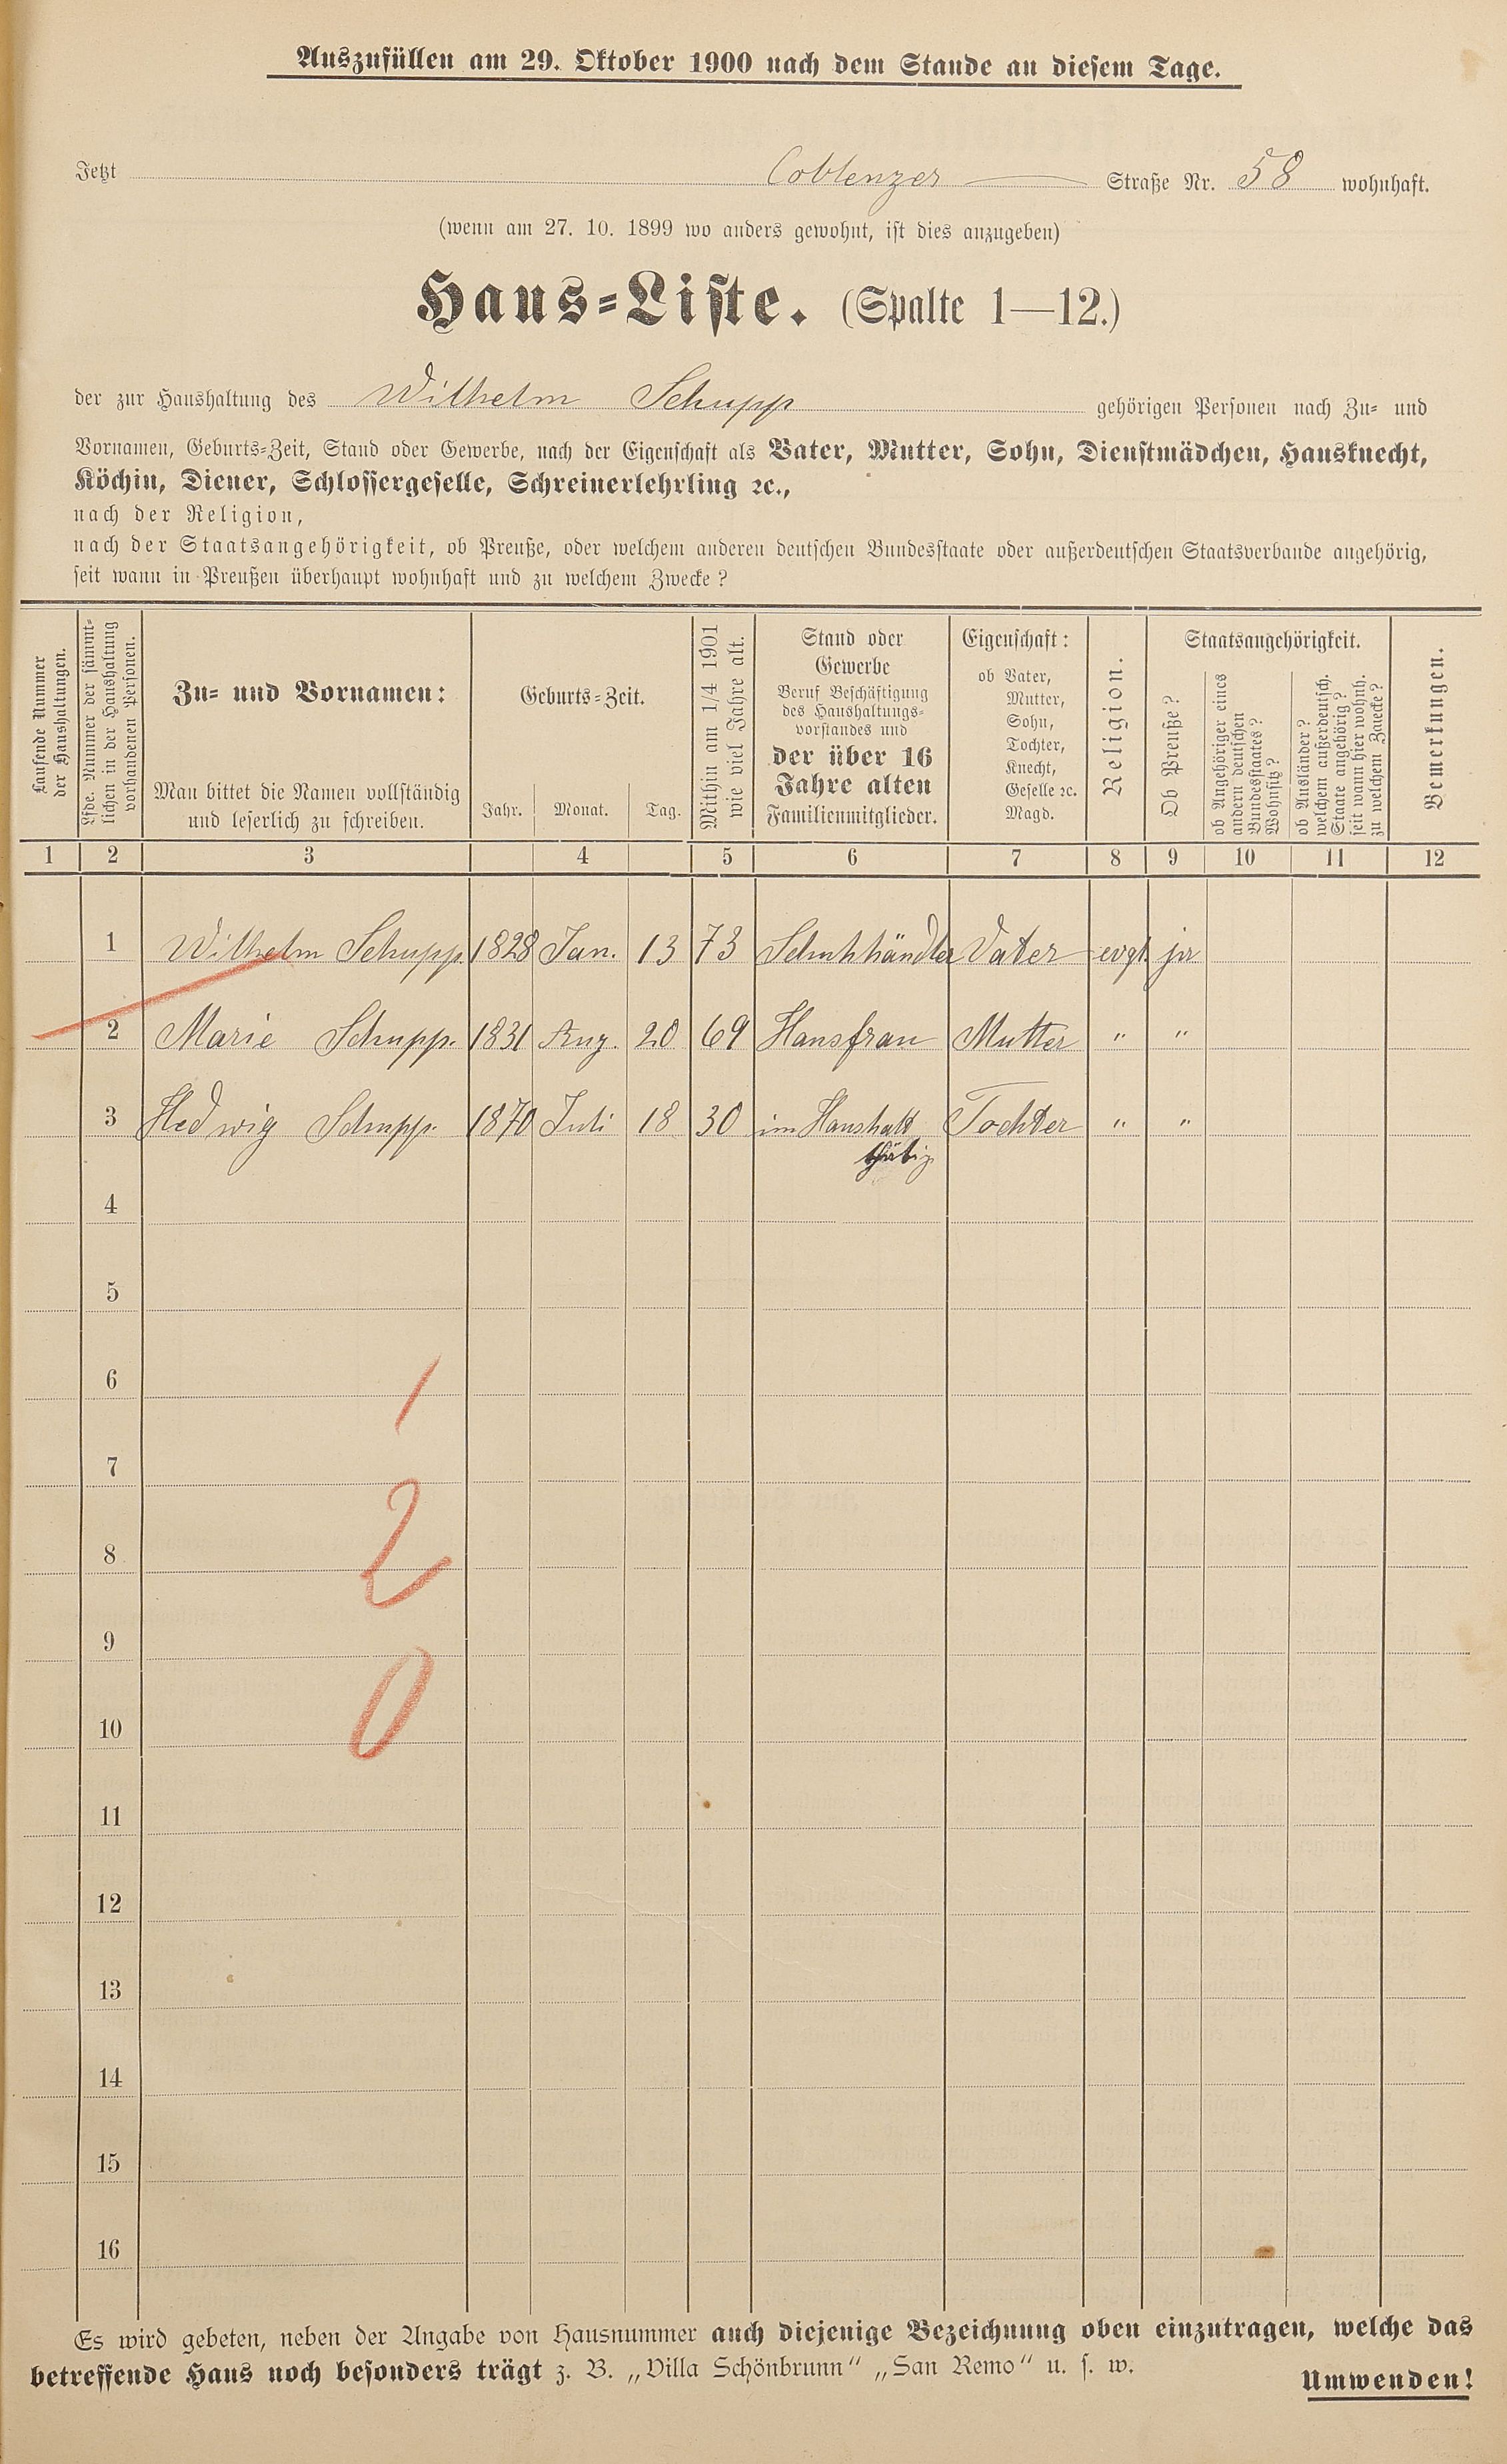 Auszufüllen am 29. Oktober 1900 nach dem Stande an diesem Tage.
Jetzt Coblenzer Straße Nr. 58 wohnhaft.
(wenn am 27. 10. 1899 wo anders gewohnt, ist dies anzugeben)
Haus-Liste. (Spalte 1—12.)
der zur Haushaltung des Wilhelm Schupp gehörigen Personen nach Zu- und
Vornamen, Geburts-Zeit, Stand oder Gewerbe, nach der Eigenschaft als Vater, Mutter, Sohn, Dienstmädchen, Hausknecht,
Köchin, Diener, Schlossergeselle, Schreinerlehrling ꝛc.,
nach der Religion,
nach der Staatsangehörigkeit, ob Preuße, oder welchem anderen deutschen Bundesstaate oder außerdeutschen Staatsverbande angehörig,
seit wann in Preußen überhaupt wohnhaft und zu welchem Zwecke?
Laufende Nummer
der Haushaltungen.
Lfde. Nummer der sämmt-
lichen in der Haushaltung
vorhandenen Personen.
Zu- und Vornamen:
Man bittet die Namen vollständig
und leserlich zu schreiben.
Geburts-Zeit.
Jahr. Monat. Tag.
Mithin am 1/4 1901
wie viel Jahre alt.
Stand oder
Gewerbe
Beruf Beschäftigung
des Haushaltungs-
vorstandes und
der über 16
Jahre alten
Familienmitglieder.
Eigenschaft:
ob Vater,
Mutter,
Sohn,
Tochter,
Knecht,
Geselle ꝛc.
Magd.
Religion.
Staatsangehörigkeit.
Ob Preuße?
ob Angehöriger eines
andern deutschen
Bundesstaates?
Wohnsitz?
ob Ausländer?
welchem außerdeutsch.
Staate angehörig?
seit wann hier wohnh.
zu welchem Zwecke?
Bemerkungen.
1 2 3 4 5 6 7 8 9 10 11 12
1 Wilhelm Schupp 1828 Jan. 13 73 Schuhhändler Vater evgl ja
2 Marie Schupp. 1831 Aug. 20 69 Hausfrau Mutter " "
3 Hedwig Schupp. 1870 Juli 18 30 im Haushalt Tochter " "
thätig.
4
5
6
1
7
2
8
9
0
10
11
12
13
14
15
16
Es wird gebeten, neben der Angabe von Hausnummer auch diejenige Bezeichnung oben einzutragen, welche das
betreffende Haus noch besonders trägt z. B. „Villa Schönbrunn" „San Remo" u. s. w.
Umwenden!